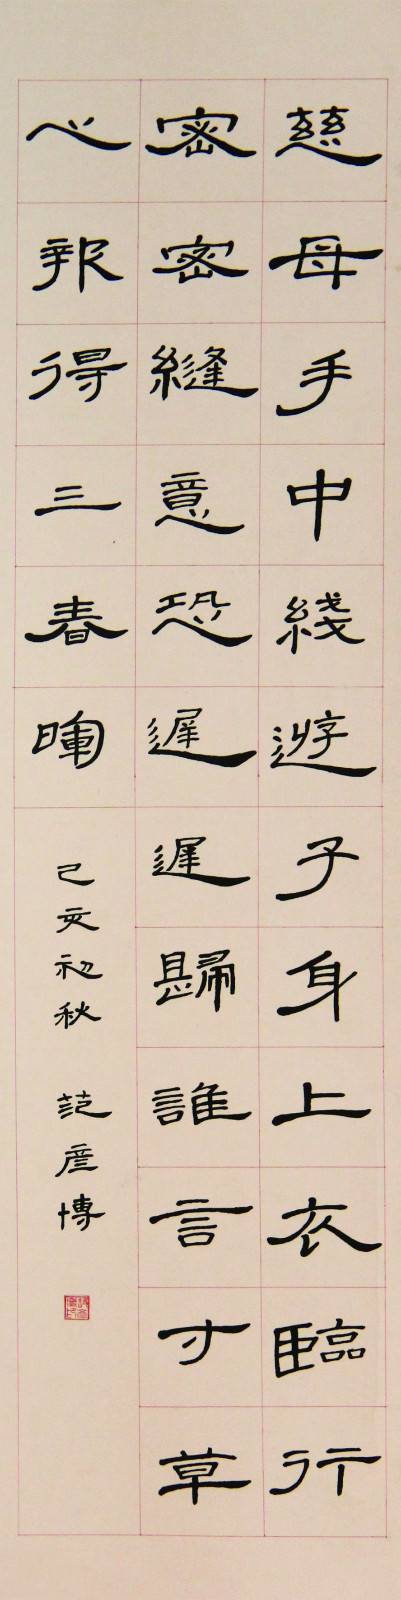 慈母手中綫遊子身上衣臨行
密密縫意恐遲遲歸誰言寸草
心報得三春暉
己亥初秋 范彦博